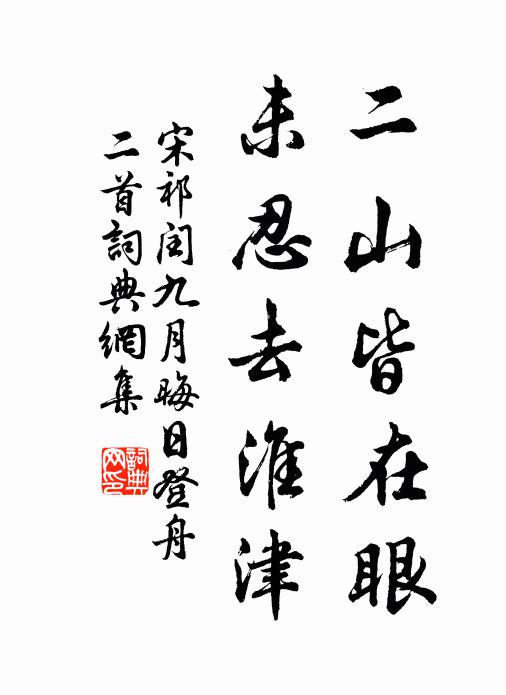 二山皆在眼
未忍去淮津
宋祁閏九月晦日登舟
二首詞典網集
詞典
网印